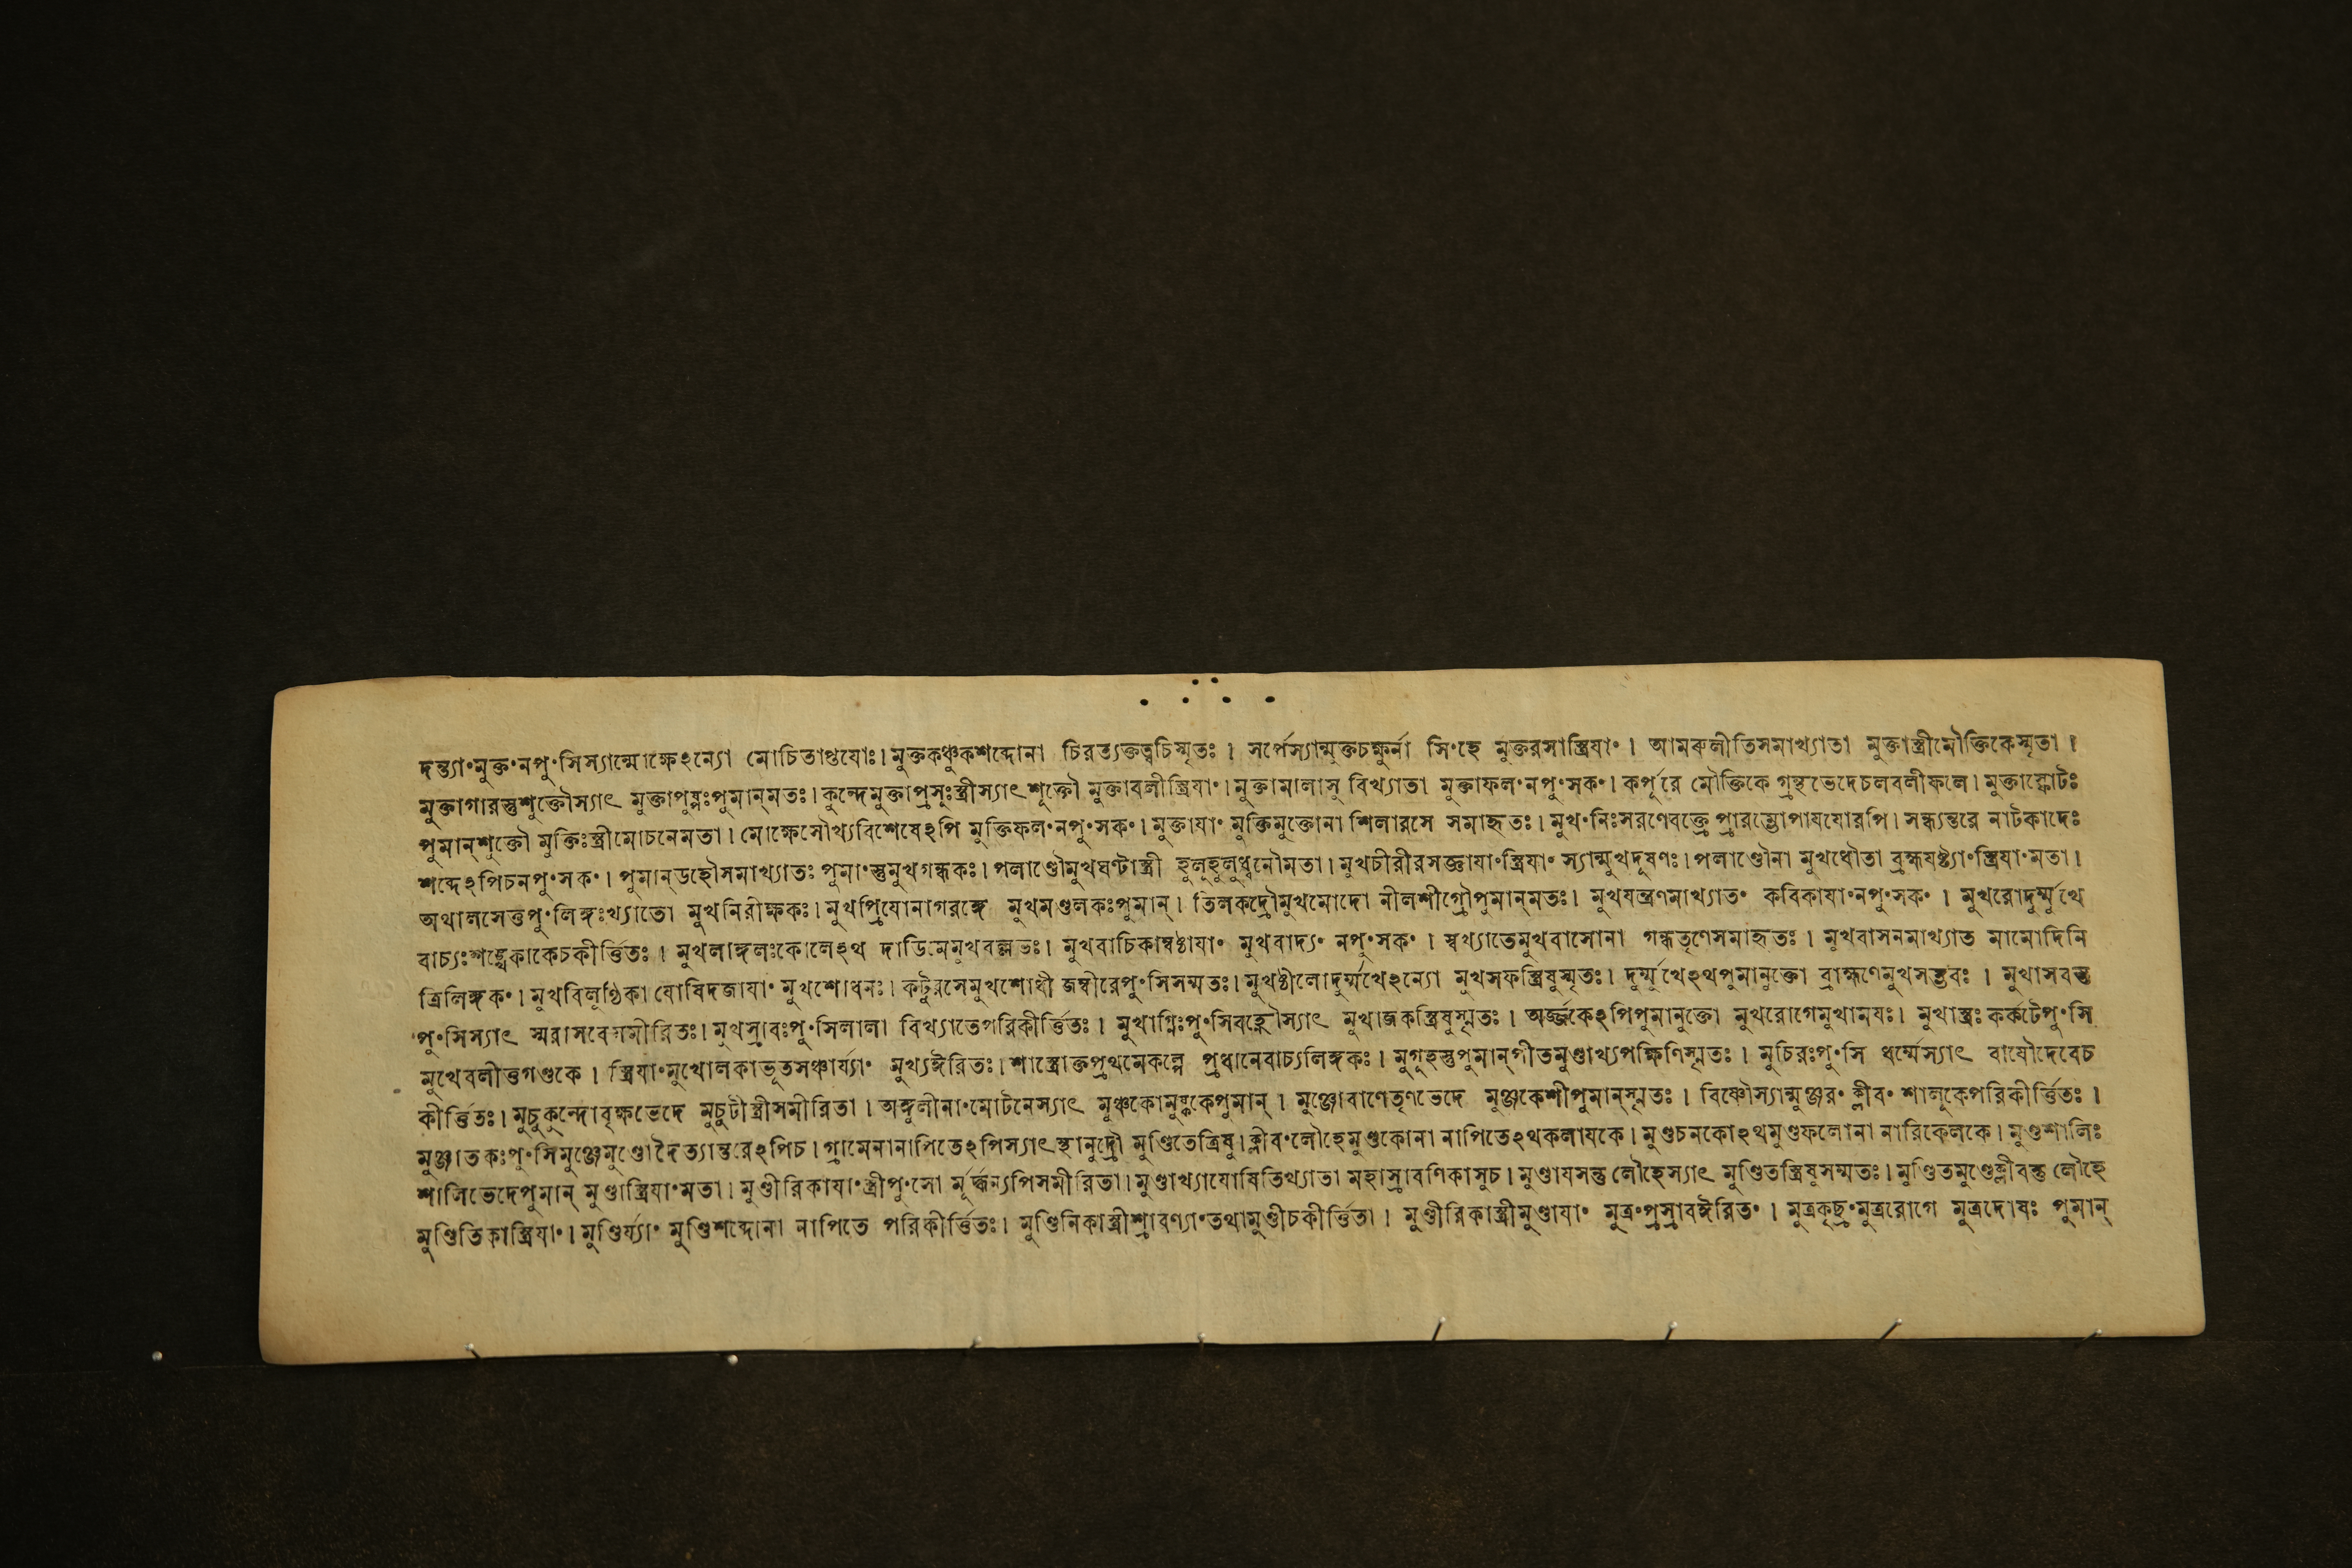 দন্ত্যা॰মুক্ত॰নপু॰সিস্যান্মোক্ষেঽন্যো মোচিতাপ্তযোঃ। মুক্তকঞ্চুকশব্দোনা চিরত্যক্তত্বচিস্মৃতঃ । সর্পেস্যান্মুক্তচক্ষুর্না সি॰হে মুক্তরসাস্ত্রিযা॰ । আমৰুলীতিসমাখ্যাতা মুক্তাস্ত্রীমৌক্তিকেস্মৃতা ।
মুক্তাগারস্তুশুক্তৌস্যাৎ মুক্তাপুষ্পঃপুমান্মতঃ। কুন্দেমুক্তাপ্রসূঃস্ত্রীস্যাৎশুক্তৌ মুক্তাবলীস্ত্রিযা॰। মুক্তামালাসু বিখ্যাতা মুক্তাফল॰নপু॰সক॰। কর্পূরে মৌক্তিকে গ্রন্থভেদেচলবলীফলে। মুক্তাস্ফোটঃ
পুমান্শুক্তৌ মুক্তিঃস্ত্রীমোচনেমতা। মোক্ষেসৌখ্যবিশেষেঽপি মুক্তিফল॰নপু॰সক॰। মুক্তাযা॰ মুক্তিমুক্তোনা শিলারসে সমাহৃতঃ। মুখ॰নিঃসরণেবক্ত্রে প্রারম্ভোপাযযোরপি। সন্ধ্যন্তরে নাটকাদেঃ
শব্দেঽপিচনপু॰সক॰। পুমান্ডহৌসমাখ্যাতঃ পুমা॰স্তুমুখগন্ধকঃ। পলাণ্ডৌমুখঘণ্টাস্ত্রী হুলুহুলুধ্বনৌমতা। মুখচীরীরসজ্ঞাযা॰স্ত্রিযা॰ স্যান্মুখদূষণঃ। পলাণ্ডৌনা মুখধৌতা ব্রহ্মযষ্ট্যা॰স্ত্রিযা॰মতা।
অথালসেত্তপু॰লিঙ্গঃখ্যাতো মুখনিরীক্ষকঃ। মুখপ্রিযোনাগরঙ্গে মুখমণ্ডলকঃপুমান্। তিলকদ্রৌমুখমোদো নীলশীগ্রৌপুমান্মতঃ। মুখযন্ত্রণমাখ্যাত॰ কবিকাযা॰নপু॰সক॰ । মুখরোদুর্ম্মুখে
বাচ্যঃশঙ্খেকাকেচকীর্ত্তিতঃ । মুখলাঙ্গলঃকোলেঽথ দাডিমেমুখবল্লভঃ। মুখবাচিকাম্বষ্ঠাযা॰ মুখবাদ্য॰ নপু॰সক॰ । স্বখ্যাতেমুখবাসোনা গন্ধতৃণেসমাহৃতঃ । মুখবাসনমাখ্যাত মামোদিনি
ত্রিলিঙ্গক॰। মুখবিলুণ্ঠিকা যোষিদজাযা॰ মুখশোধনঃ। কটুরসেমুখশোধী জম্বীরেপু॰সিসম্মতঃ। মুখষ্ঠীলোদুর্ম্মুখেঽন্যো মুখসফস্ত্রিষুস্মৃতঃ। দুর্ম্মুখেঽথপুমানুক্তো ব্রাহ্মণেমুখসম্ভবঃ । মুখাসবস্তু
পু॰সিস্যাৎ স্মরাসবেসমীরিতঃ। মুখস্রাবঃপু॰সিলালা বিখ্যাতেপরিকীর্ত্তিতঃ । মুখাগ্নিঃপু॰সিবহ্নৌস্যাৎ মুখাজকস্ত্রিষুস্মৃতঃ । অর্জ্জকেঽপিপুমানুক্তো মুখরোগেমুখামযঃ। মুখাস্ত্রঃ কর্কটেপু॰সি
মুখেবলীত্তগণ্ডকে । স্ত্রিযা॰মুখোলকাভূতসঞ্চার্য্যা॰ মুখ্যঈরিতঃ। শাস্ত্রোক্তপ্রথমেকল্পে প্রধানেবাচ্যলিঙ্গকঃ। মুগূহস্তুপুমান্গীতমুণ্ডাখ্যপক্ষিণিস্মৃতঃ । মুচিরঃপু॰সি ধর্ম্মেস্যাৎ বাযৌদেবেচ
কীর্ত্তিতঃ। মুচুকুন্দোবৃক্ষভেদে মুচুটীস্ত্রীসমীরিতা । অঙ্গুলীনা॰মোটনেস্যাৎ মুঞ্চকোমুষ্ককেপুমান্ । মুঞ্জোবাণেতৃণভেদে মুঞ্জকেশীপুমান্স্মৃতঃ । বিষ্ণৌস্যান্মুঞ্জর॰ক্লীব॰ শালুকেপরিকীর্ত্তিতঃ ।
মুঞ্জাতকঃপু॰সিমুঞ্জেমুণ্ডোদৈত্যান্তরেঽপিচ। গ্রামেনানাপিতেঽপিস্যাৎস্থানুদ্রৌ মুণ্ডিতেত্রিষু। ক্লীব॰লৌহেমুণ্ডকোনা নাপিতেঽথকলাযকে। মুণ্ডচনকোঽথমুণ্ডফলোনা নারিকেলকে। মুণ্ডশালিঃ
শালিভেদেপুমান্ মুণ্ডাস্ত্রিযা॰মতা। মুণ্ডীরিকাযা॰স্ত্রীপু॰সো র্মূর্দ্ধন্যপিসমীরিতা। মুণ্ডাখ্যাযোষিতিখ্যাতা মহাস্রাবণিকাসুচ। মুণ্ডাযসন্তু লৌহেস্যাৎ মুণ্ডিতস্ত্রিষুসম্মতঃ। মুণ্ডিতমুণ্ডেক্লীবন্তু লৌহে
মুণ্ডিতিকাস্ত্রিযা॰। মুণ্ডির্য্যা॰ মুণ্ডিশব্দোনা নাপিতে পরিকীর্ত্তিতঃ। মুণ্ডিনিকাস্ত্রীশ্রাবণ্যা॰তথামুণ্ডীচকীর্ত্তিতা। মুণ্ডীরিকাস্ত্রীমুণ্ডাযা॰ মুত্র॰প্রস্রাবঈরিত॰ । মুত্রকৃছ্র॰মুত্ররোগে মুত্রদোষঃ পুমান্